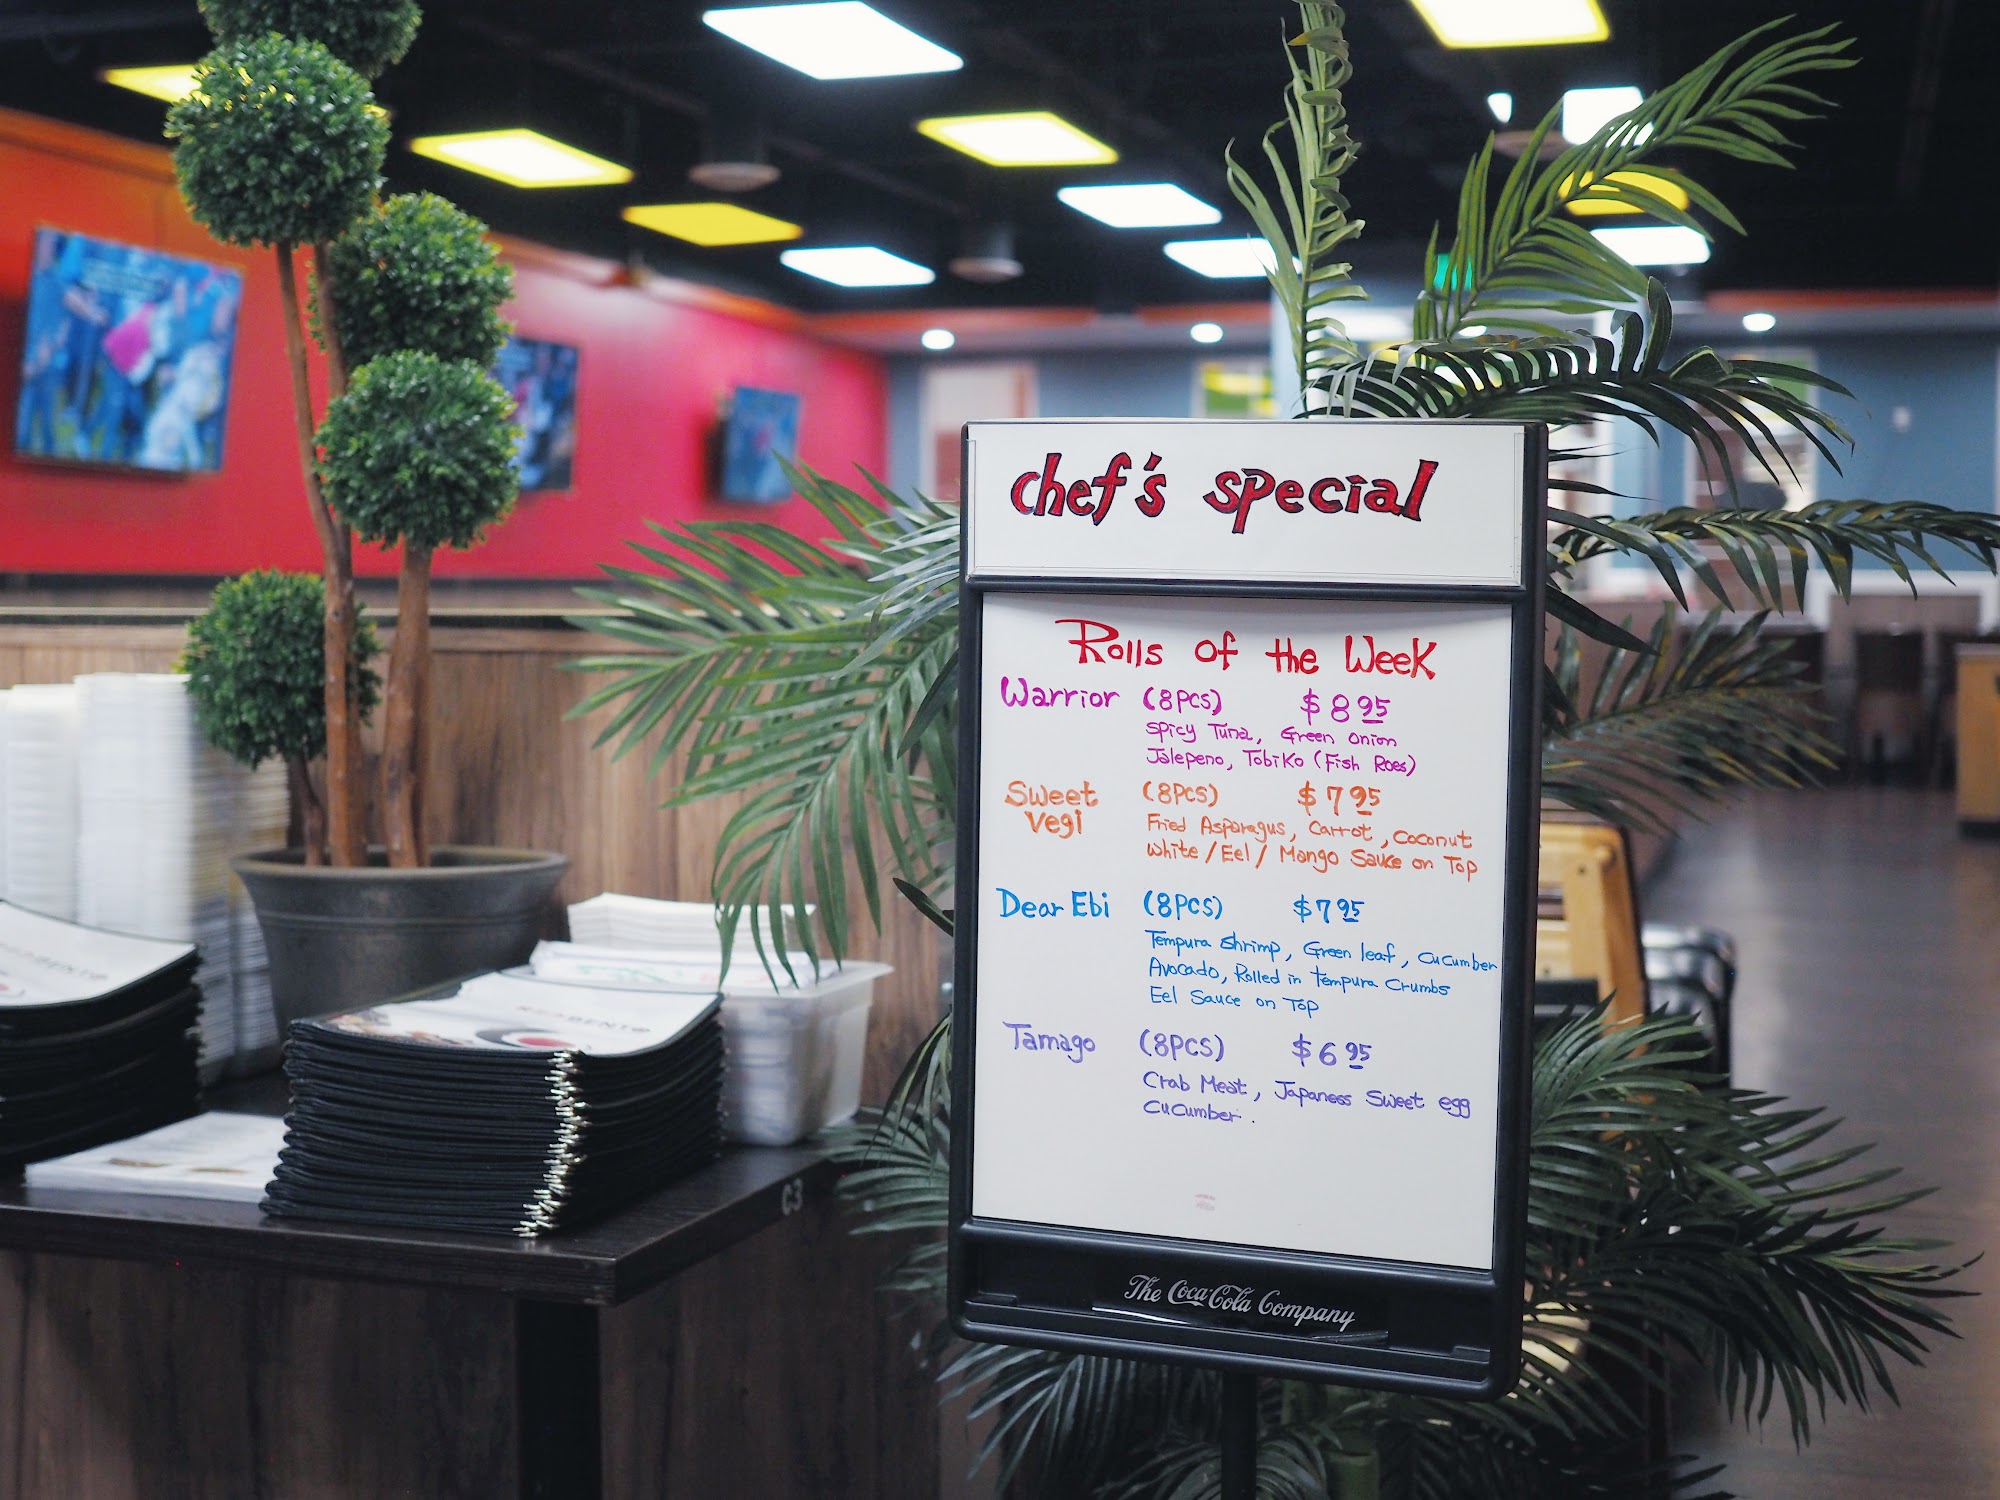 chef's special
Rolls of the Week
Warrior (8PCS) $8.95
Spicy Tuna, Green onion
Jalepeno, Tobiko (Fish Roes)
Sweet Vegi (8PCS) $7.95
Fried Asparagus, Carrot, Coconut
White/Eel/Mango Sauce on Top
Dear Ebi (8PCS) $7.95
Tempura shrimp, Green leaf, Cucumber
Avocado, Rolled in tempura Crumbs
Eel Sauce on Top
Tamago (8PCS) $6.95
Crab Meat, Japaness Sweet egg
Cucumber.
The Coca-Cola Company
C3